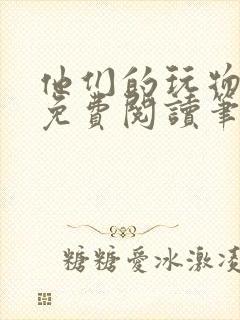 他们的玩物
免費閱讀筆
糖糖愛冰激凌